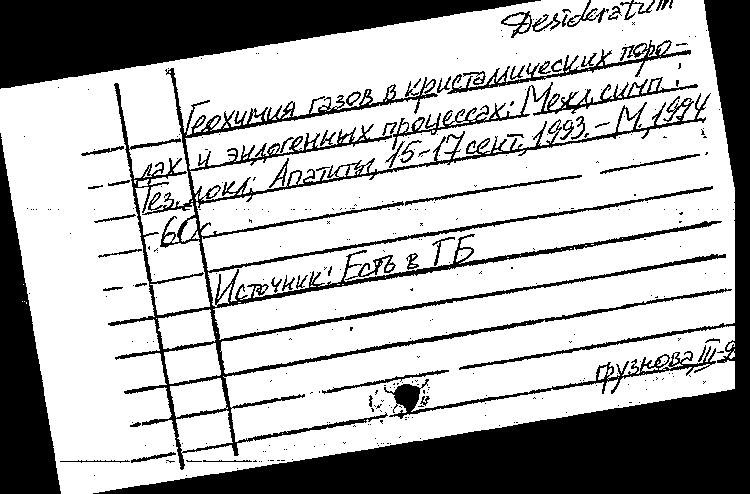 Desideratum
Геохимия газов в кристаллических поро-
дах и эндогенных процессах: Межд. симп.:
Тез. докл., Апатиты, 15-17 сент., 1993. - М., 1994
- 60с.
Источник: Есть в ГБ
грузнова III-9